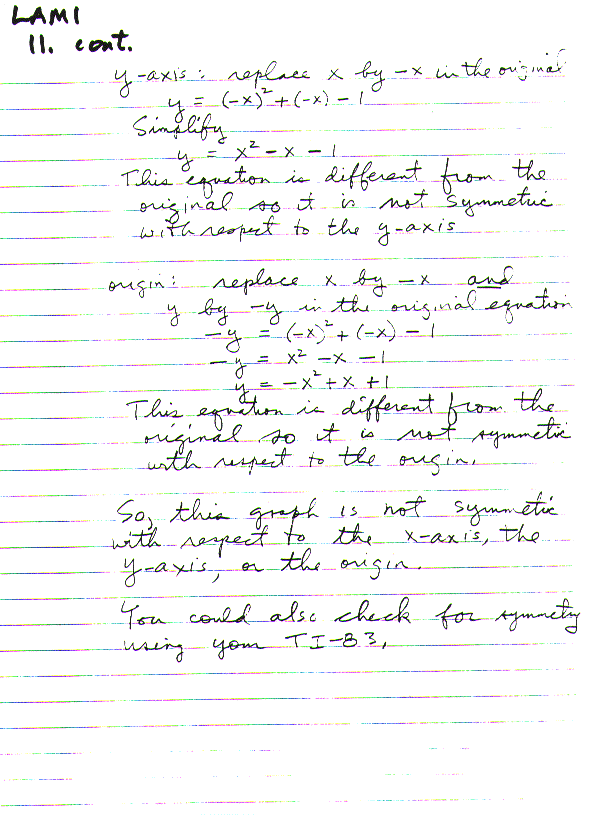 LAMI
11. cont.
y-axis: replace x by -x in the original
y = (-x)² + (-x) - 1
Simplify
y = x² - x - 1
This equation is different from the
original so it is not symmetric
with respect to the y-axis
origin: replace x by -x and
y by -y in the original equation
-y = (-x)² + (-x) - 1
-y = x² - x - 1
y = -x² + x + 1
This equation is different from the
original so it is not symmetric
with respect to the origin.
So, this graph is not symmetric
with respect to the x-axis, the
y-axis, or the origin.
You could also check for symmetry
using your TI-83.